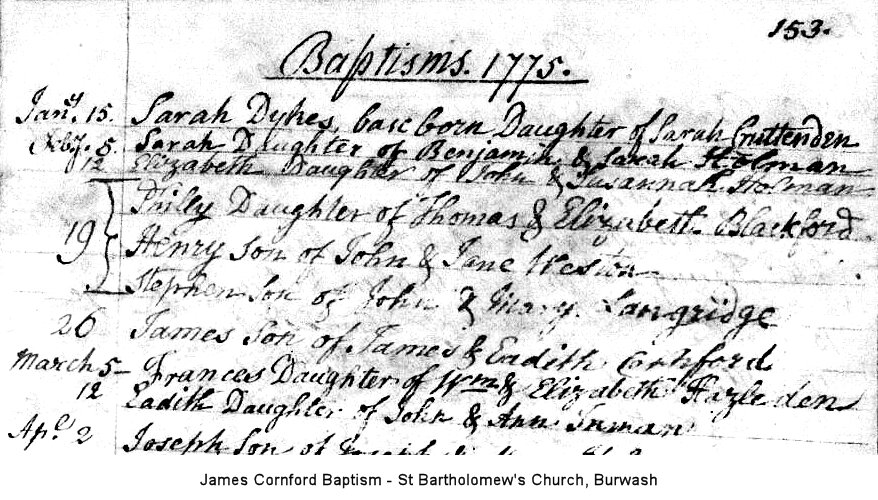 153.
Baptisms. 1775.
Jany. 15. Sarah Dykes, base born Daughter of Sarah Cruttenden
Feby. 5. Sarah Daughter of Benjamin & Sarah Holman
12 Elizabeth Daughter of John & Susannah Holman
Philly Daughter of Thomas & Elizabeth Blackford
19 Henry Son of John & Jane Weston
Stephen Son of John & Mary Langridge
26 James Son of James & Eadith Cornford
March 5 Frances Daughter of Wm & Elizabeth Hazleden
12 Eadith Daughter of John & Ann Inman
Apl. 2 Joseph Son of Joseph
James Cornford Baptism - St Bartholomew's Church, Burwash